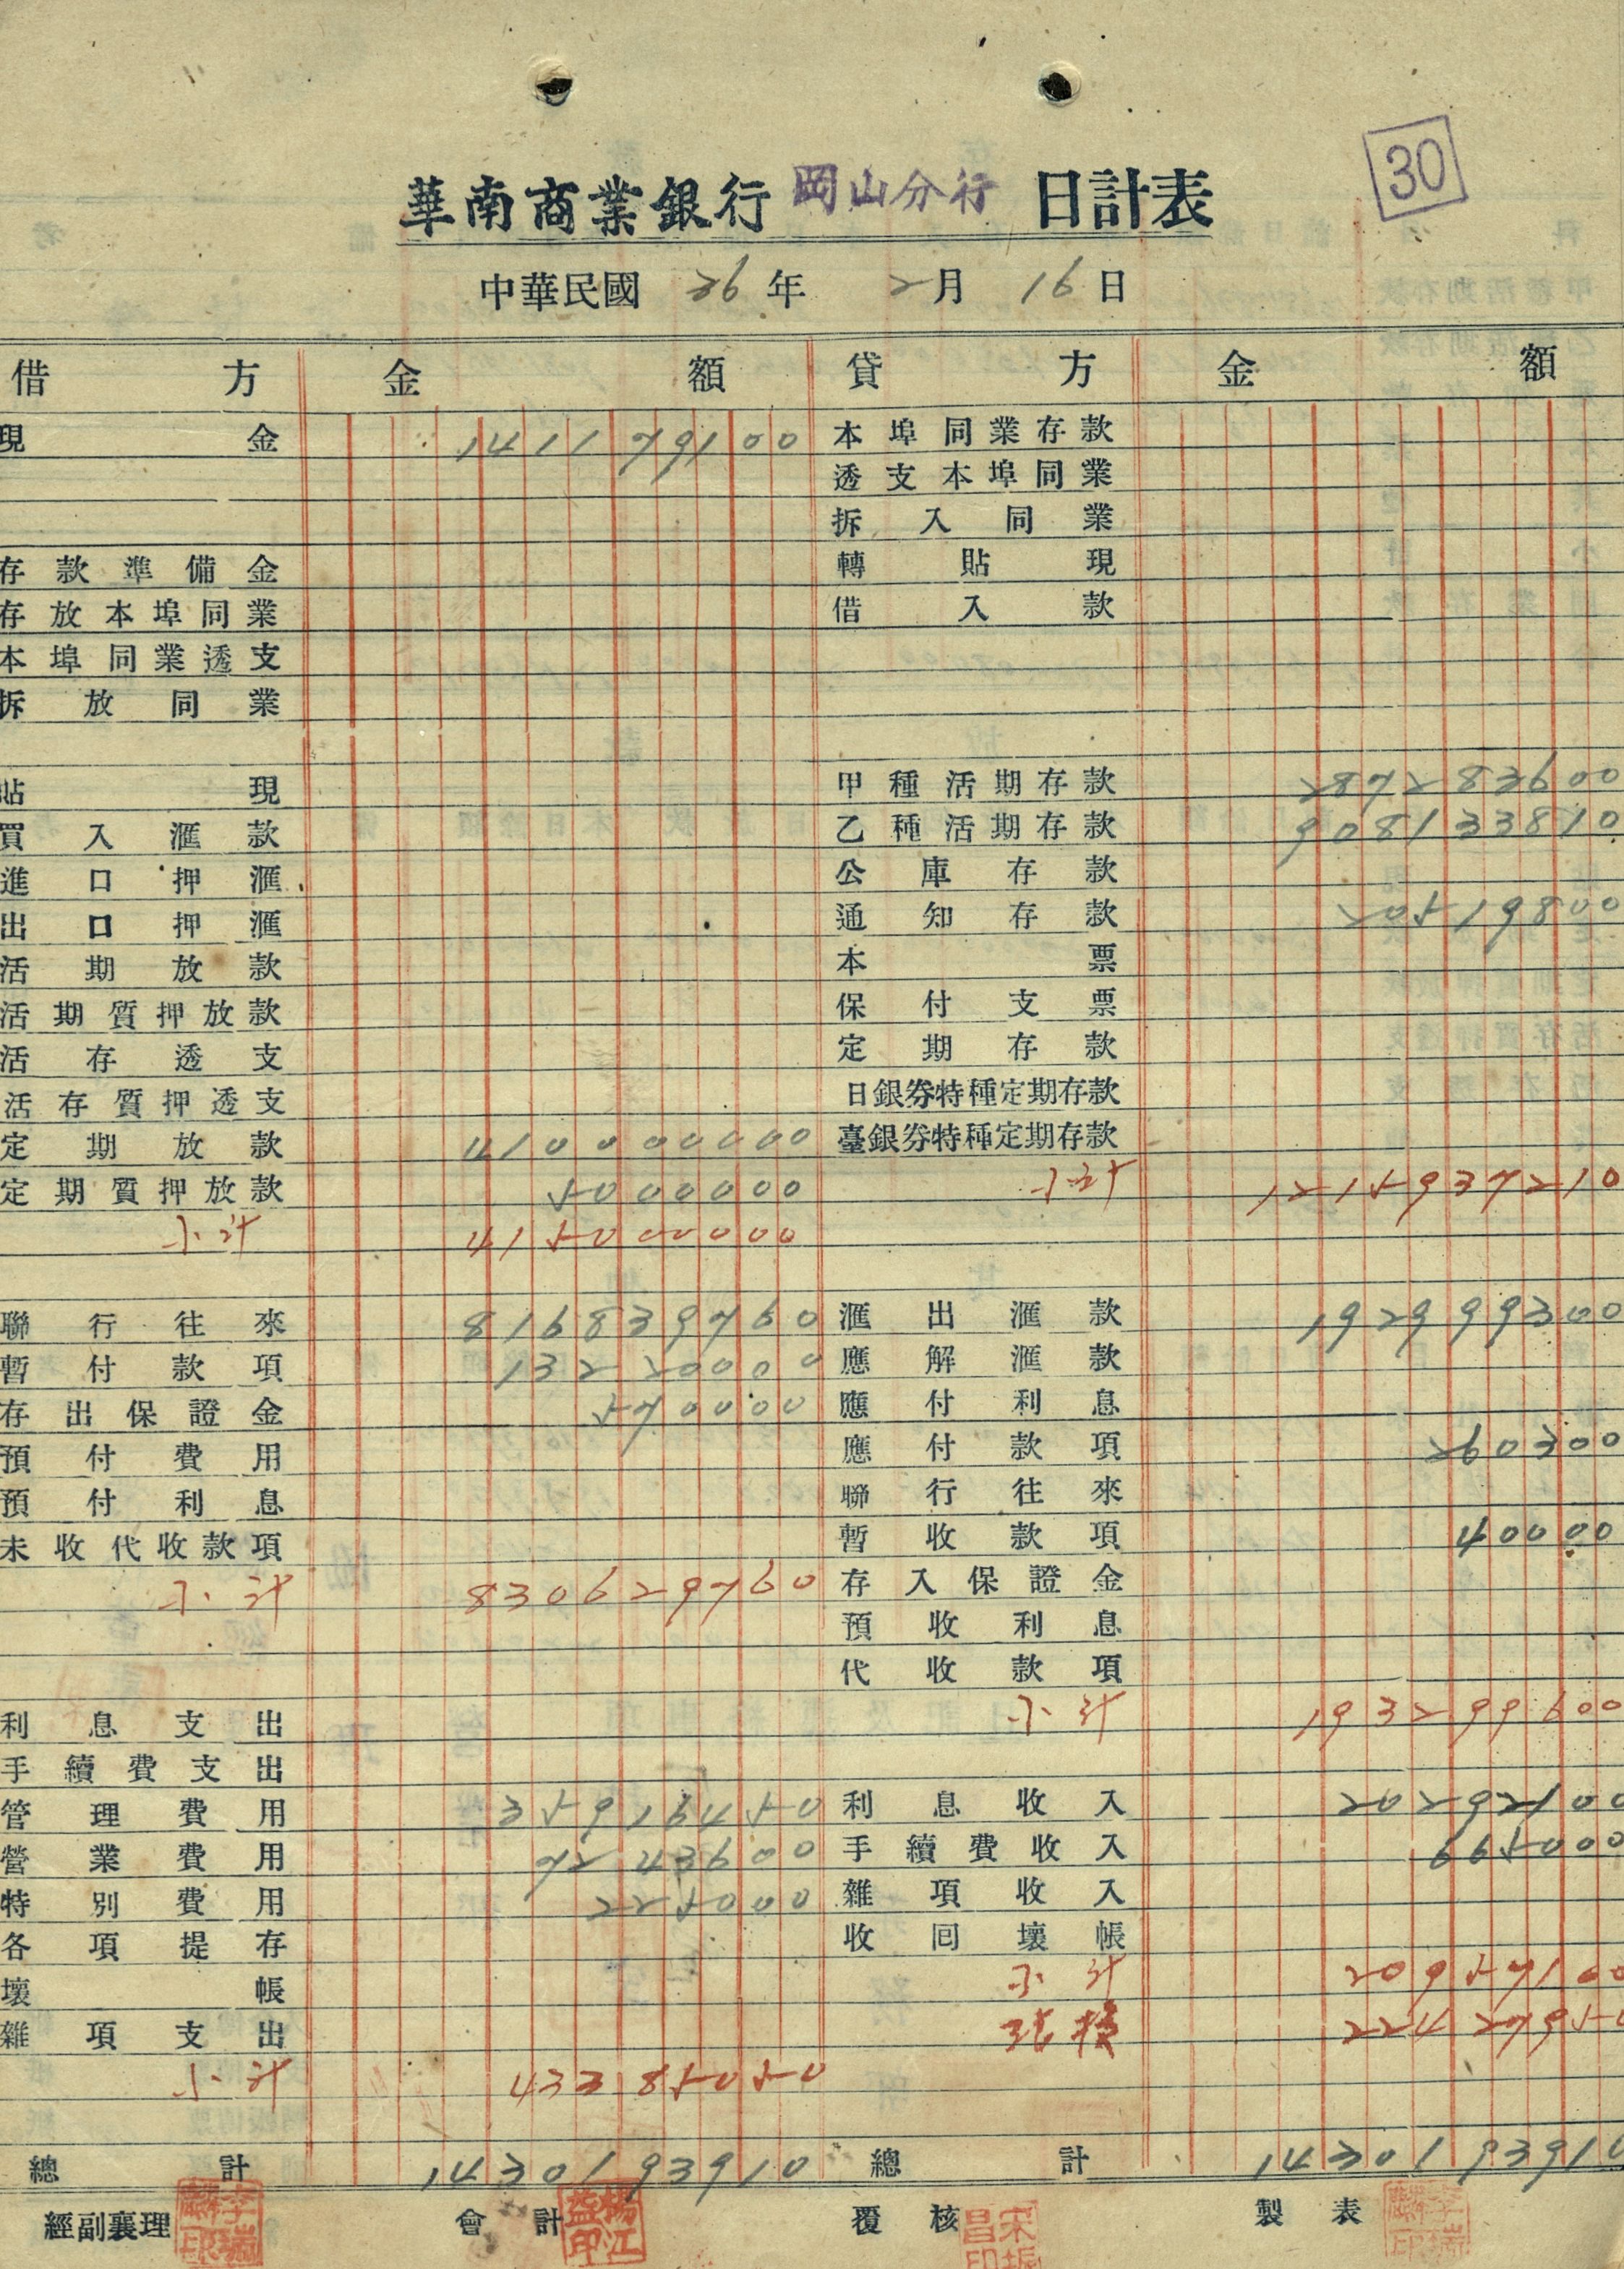 30
華南商業銀行 岡山分行 日計表
中華民國 36 年 2 月 16 日
借方 金額 貸方 金額
現金 141179100 本埠同業存款
透支本埠同業
拆入同業
存款準備金 轉貼現
存放本埠同業 借入款
本埠同業透支
拆放同業
貼現 甲種活期存款 287283600
買入滙款 乙種活期存款 908133810
進口押滙 公庫存款
出口押滙 通知存款 20519800
活期放款 本票
活期質押放款 保付支票
活存透支 定期存款
活存質押透支 日銀券特種定期存款
定期放款 410000000 臺銀券特種定期存款
定期質押放款 5000000 小計 1215937210
小計 415000000
聯行往來 816839760 滙出滙款 192999300
暫付款項 13220000 應解滙款
存出保證金 570000 應付利息
預付費用 應付款項 260300
預付利息 聯行往來
未收代收款項 暫收款項 40000
小計 830629760 存入保證金
預收利息
代收款項
利息支出 小計 193299600
手續費支出
管理費用 35916450 利息收入 20292100
營業費用 7243600 手續費收入 665000
特別費用 225000 雜項收入
各項提存 收回壞帳
壞帳 小計 20957100
雜項支出 純損 22427950
小計 43385050
總計 1430193910 總計 1430193910
經副襄理 會計 覆核 製表